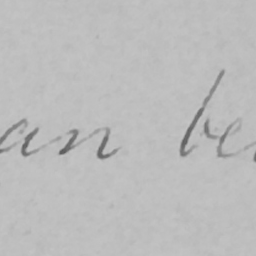 an be